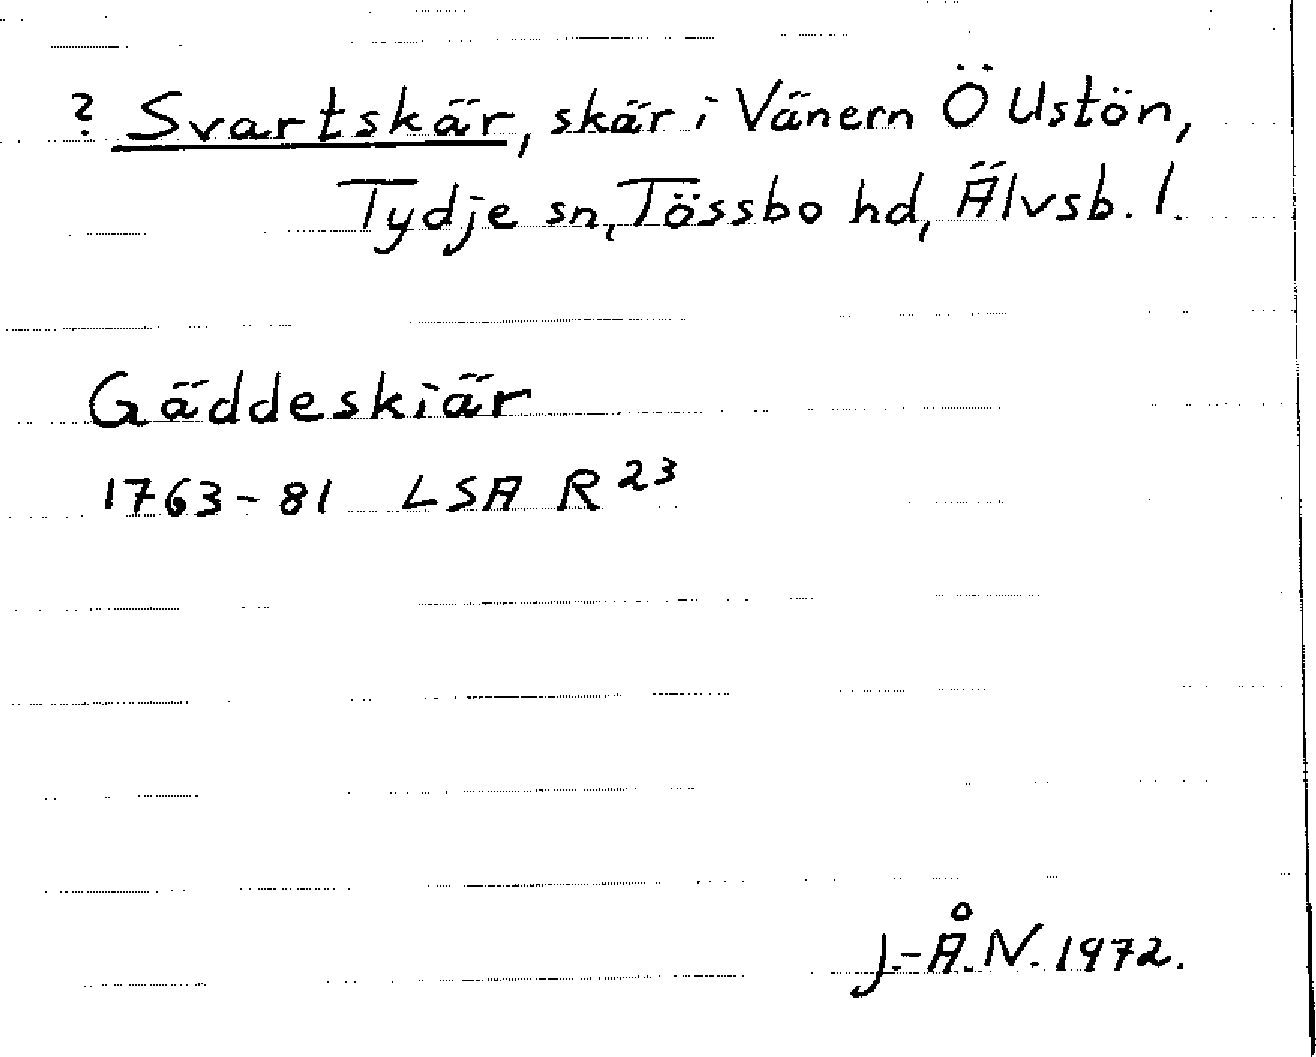 ? Svartskär, skär i Vänern Ö Ustön,
Tydje sn, Tössbo hd, Älvsb. l.
Gäddeskiär
1763-81 LSA R 23
J.-Å. N. 1972.